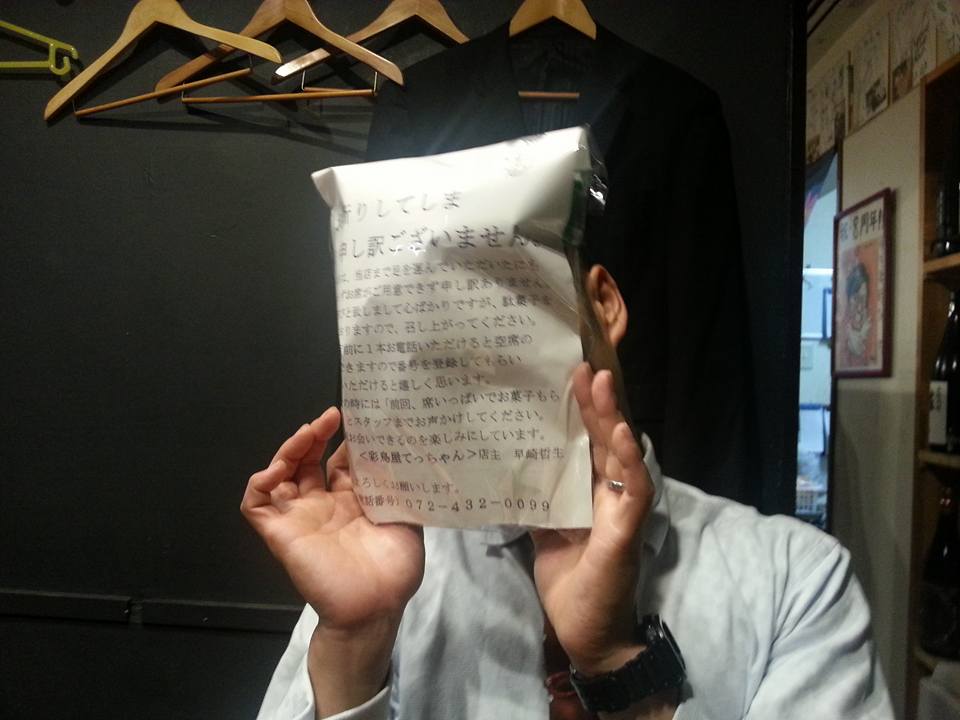 断りしてしま
申し訳ございません。
は、当店まで足を運んでいただいたにも
ずお席がご用意できず申し訳ありません。
びと致しまして心ばかりですが、駄菓子を
りますので、召し上がってください。
前に1本お電話いただけると空席の
できますので番号を登録してもらい
いただけると嬉しく思います。
の時には「前回、席いっぱいでお菓子もら
とスタッフまでお声かけしてください。
お会いできるのを楽しみにしています。
<彩鳥屋てっちゃん>店主 早崎哲生
よろしくお願いします。
電話番号)072-432-0099